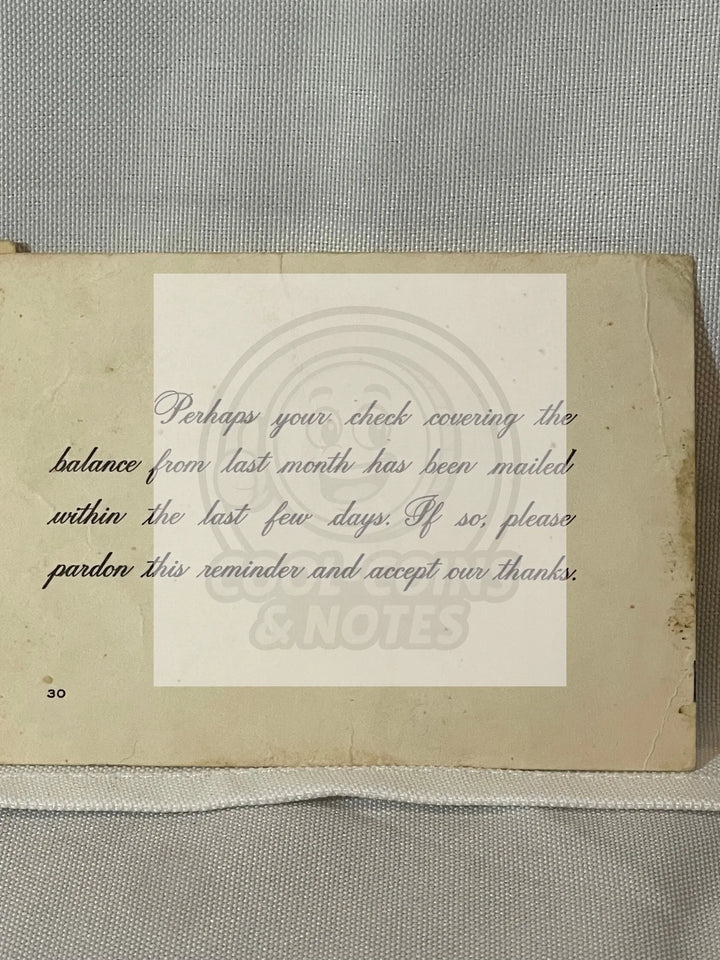 Perhaps your check covering the
balance from last month has been mailed
within the last few days. If so, please
pardon this reminder and accept our thanks.
COOL COINS
& NOTES
30